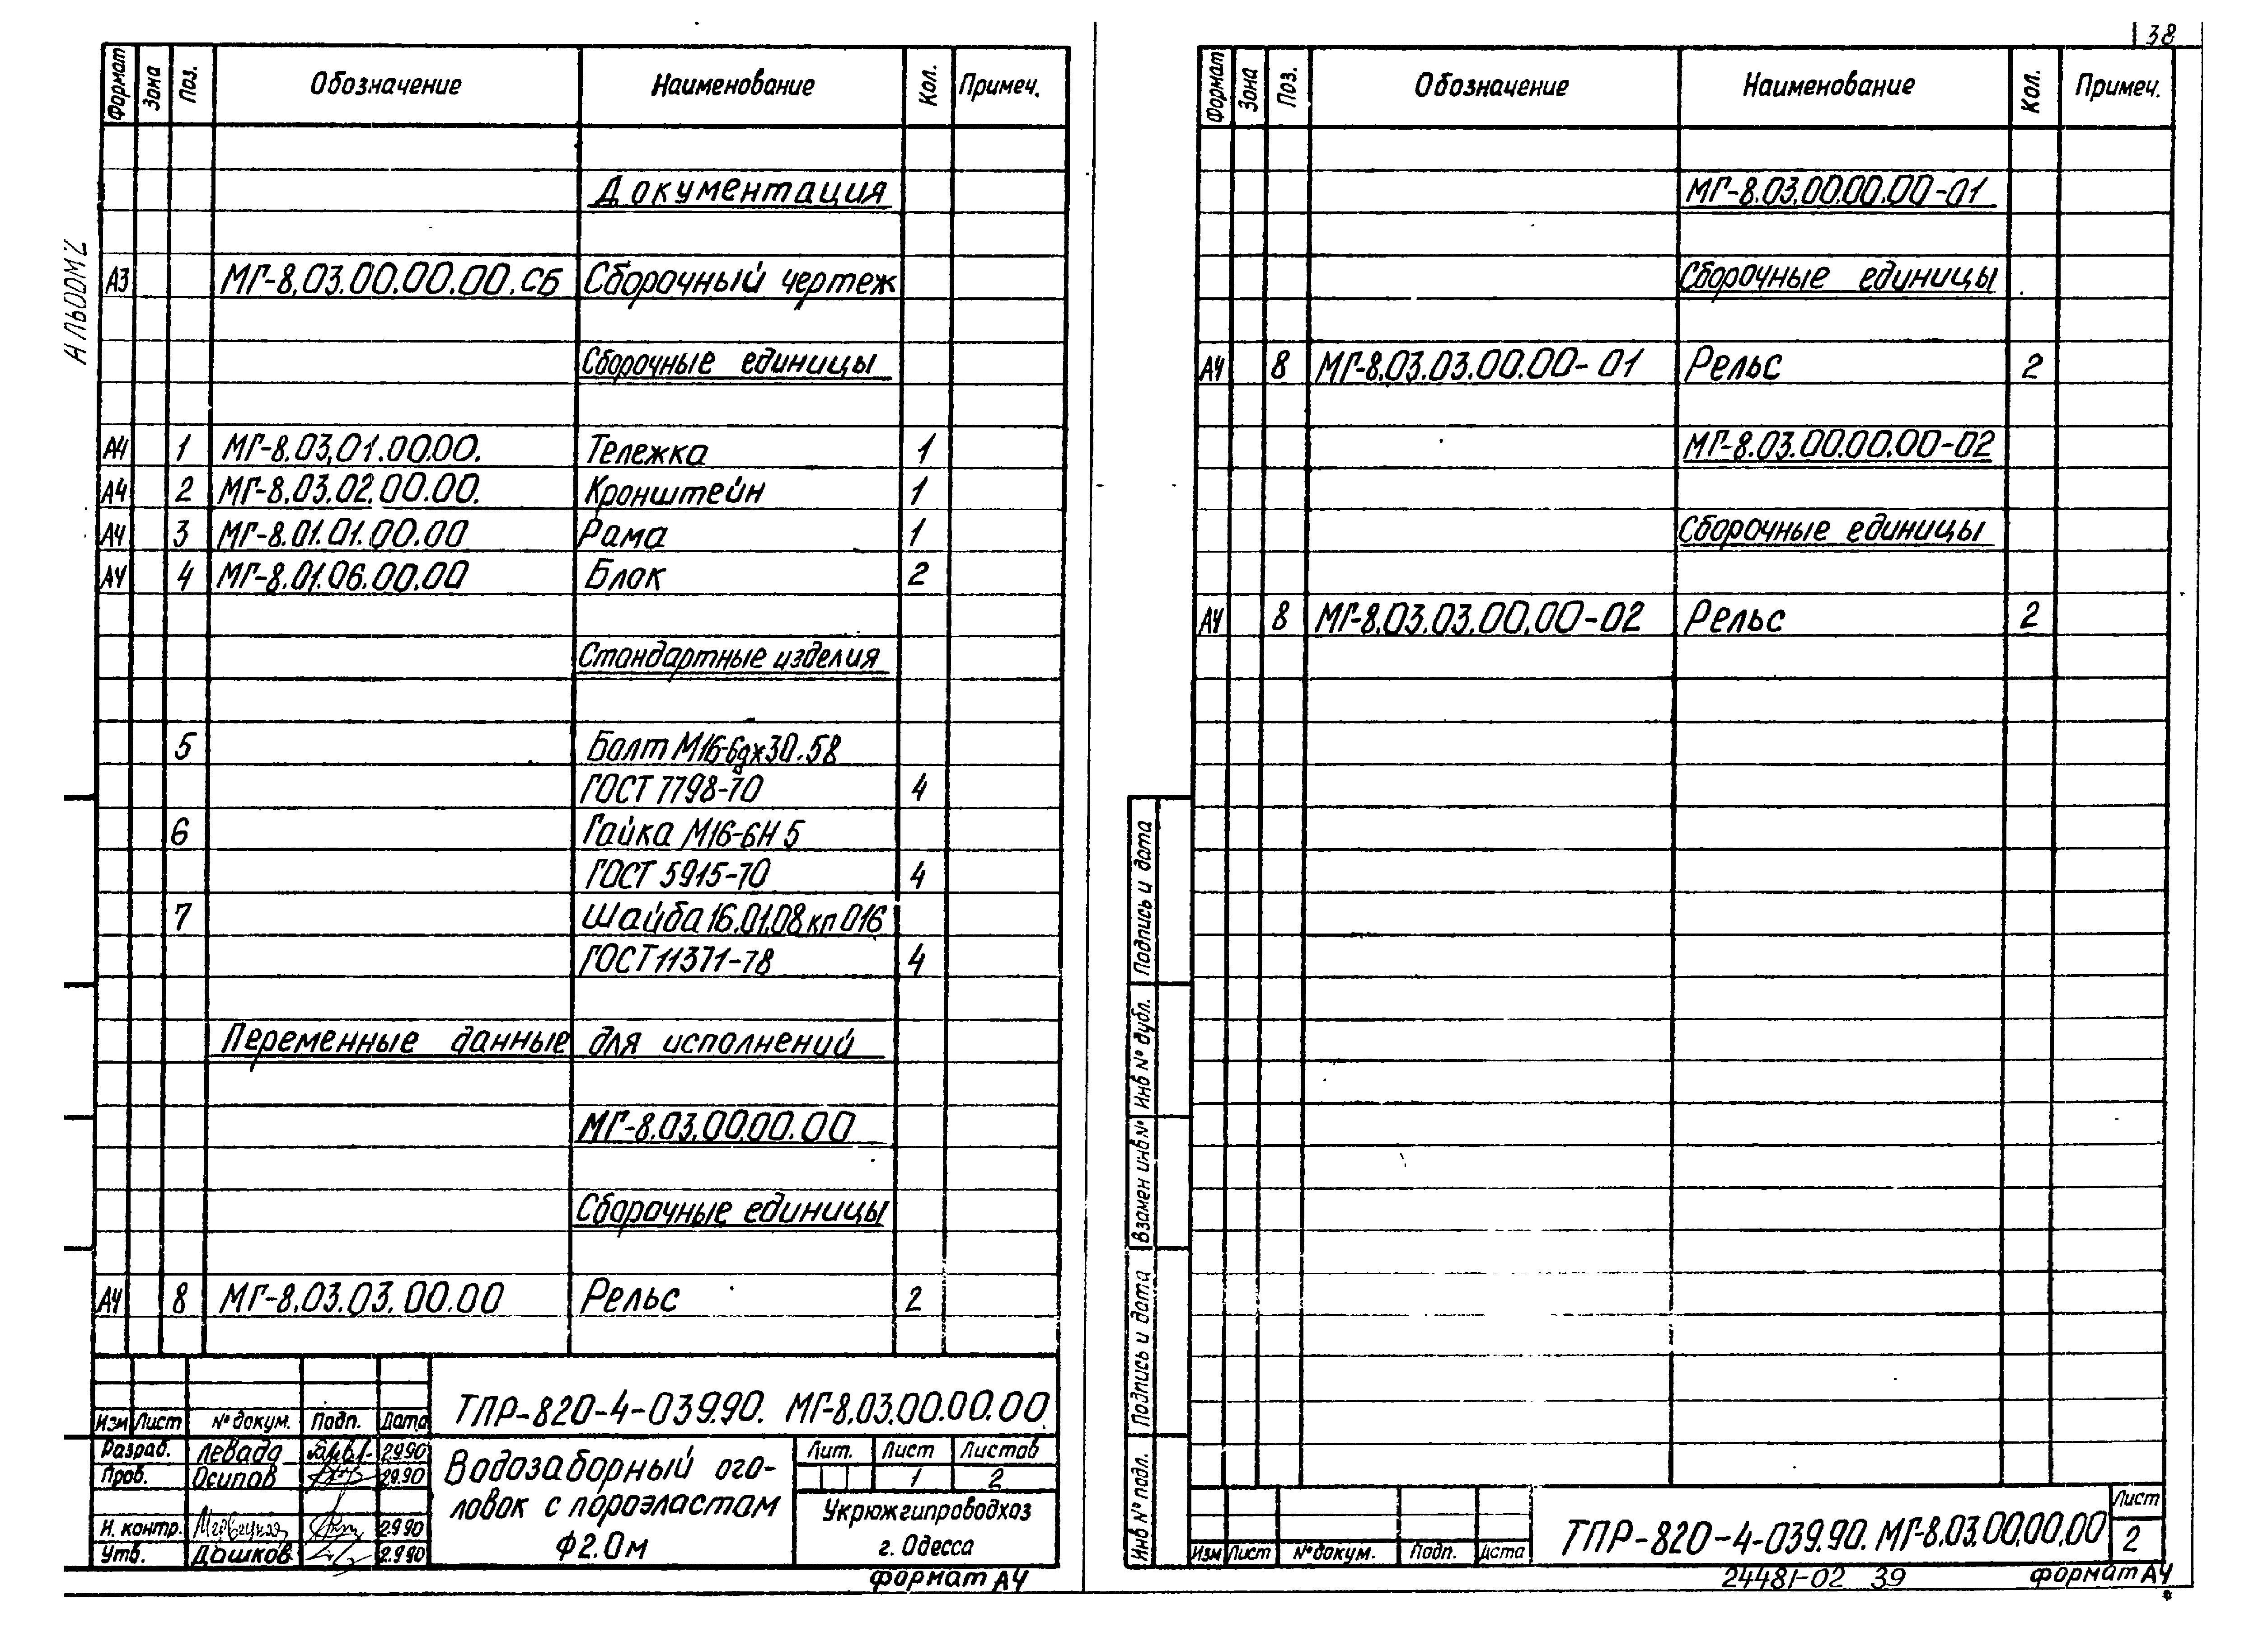 38
Альбом 2
Формат Зона Поз. Обозначение Наименование Кол. Примеч.
Документация
А3 МГ-8.03.00.00.00.СБ Сборочный чертеж
Сборочные единицы
А4 1 МГ-8.03.01.00.00. Тележка 1
А4 2 МГ-8.03.02.00.00. Кронштейн 1
А4 3 МГ-8.01.01.00.00 Рама 1
А4 4 МГ-8.01.06.00.00 Блок 2
Стандартные изделия
5 Болт М16-6gх30.58
ГОСТ 7798-70 4
6 Гайка М16-6Н 5
ГОСТ 5915-70 4
7 Шайба 16.01.08кп 016
ГОСТ 11371-78 4
Переменные данные для исполнений
МГ-8.03.00.00.00
Сборочные единицы
А4 8 МГ-8.03.03.00.00 Рельс 2
ТПР-820-4-039.90. МГ-8.03.00.00.00
Изм Лист № докум. Подп. Дата
Разраб. Левада 2.9.90
Пров. Осипов 2.9.90
Н. контр. 2.9.90
Утв. Дашков 2.9.90
Водозаборный ого-
ловок с пороэластом
Ф2.0м
Лит. Лист Листов
1 2
Укрюжгипроводхоз
г. Одесса
формат А4
Формат Зона Поз. Обозначение Наименование Кол. Примеч.
МГ-8.03.00.00.00-01
Сборочные единицы
А4 8 МГ-8.03.03.00.00-01 Рельс 2
МГ-8.03.00.00.00-02
Сборочные единицы
А4 8 МГ-8.03.03.00.00-02 Рельс 2
Подпись и дата
Инв № дубл.
Взамен инв №
Подпись и дата
Инв № подл.
Изм Лист № докум. Подп. Дата
ТПР-820-4-039.90. МГ-8.03.00.00.00
Лист
2
24481-02 39
формат А4